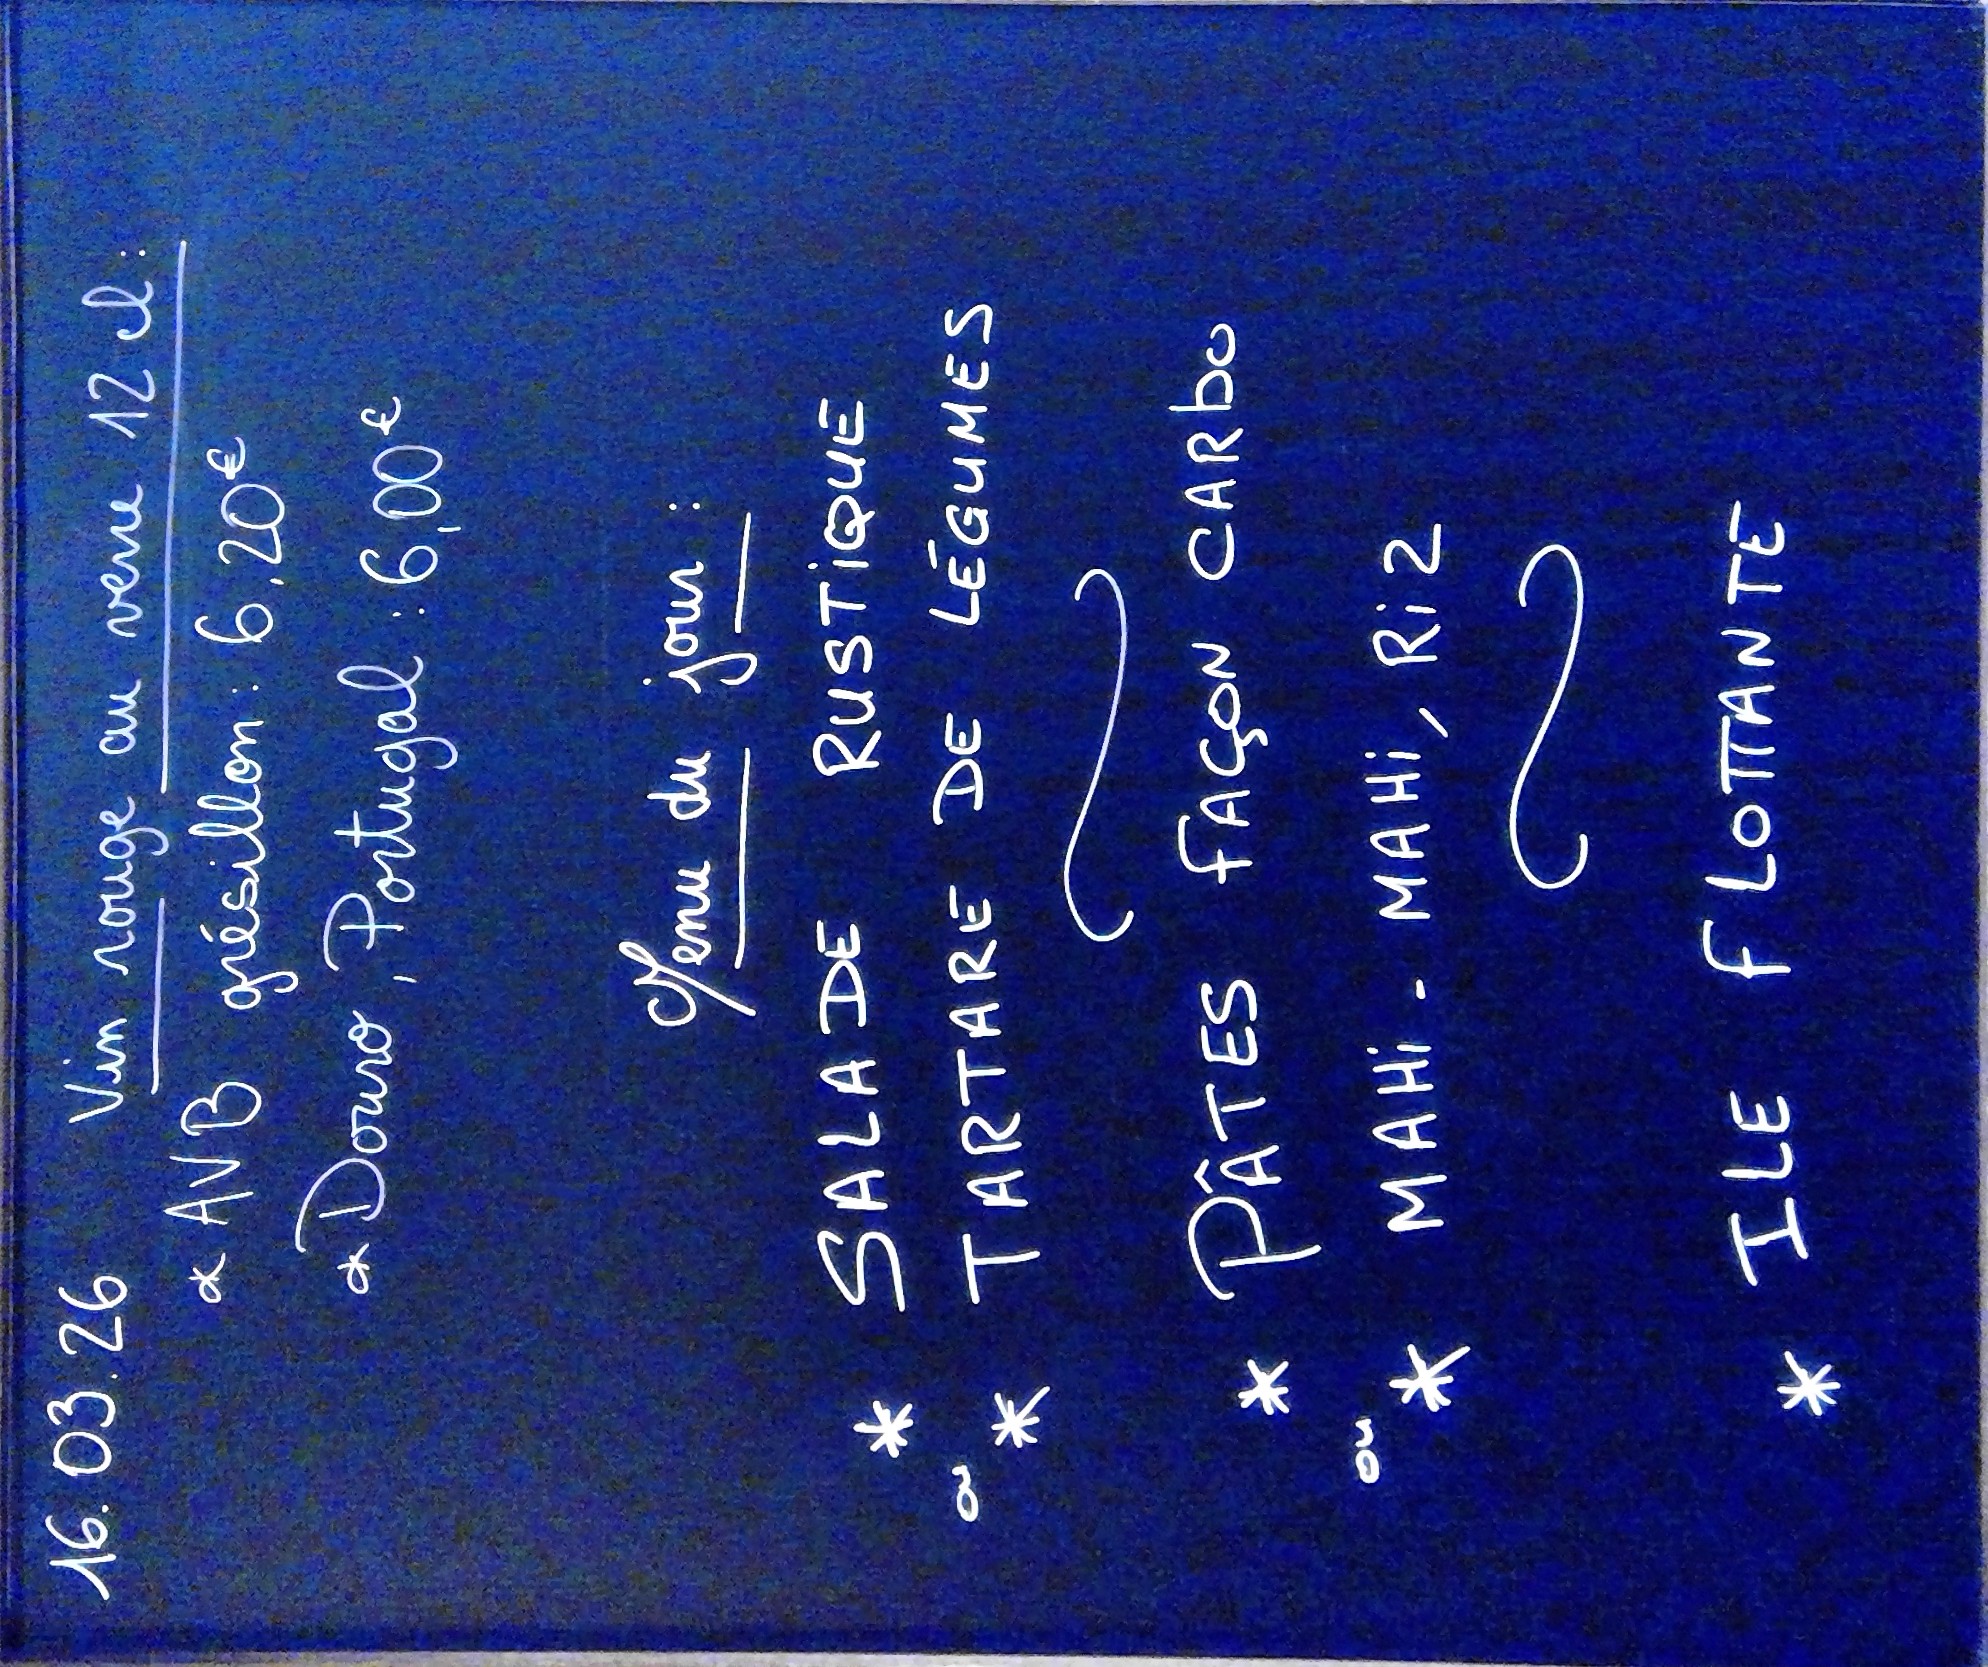 16.03.26 Vin rouge au verre 12 cl :
* AVB grésillon : 6,20€
* Douro, Portugal : 6,00€
Menu du jour :
* SALADE RUSTIQUE
ou
* TARTARE DE LÉGUMES
* PÂTES FAÇON CARBO
ou
* MAHI-MAHI, RIZ
* ILE FLOTTANTE